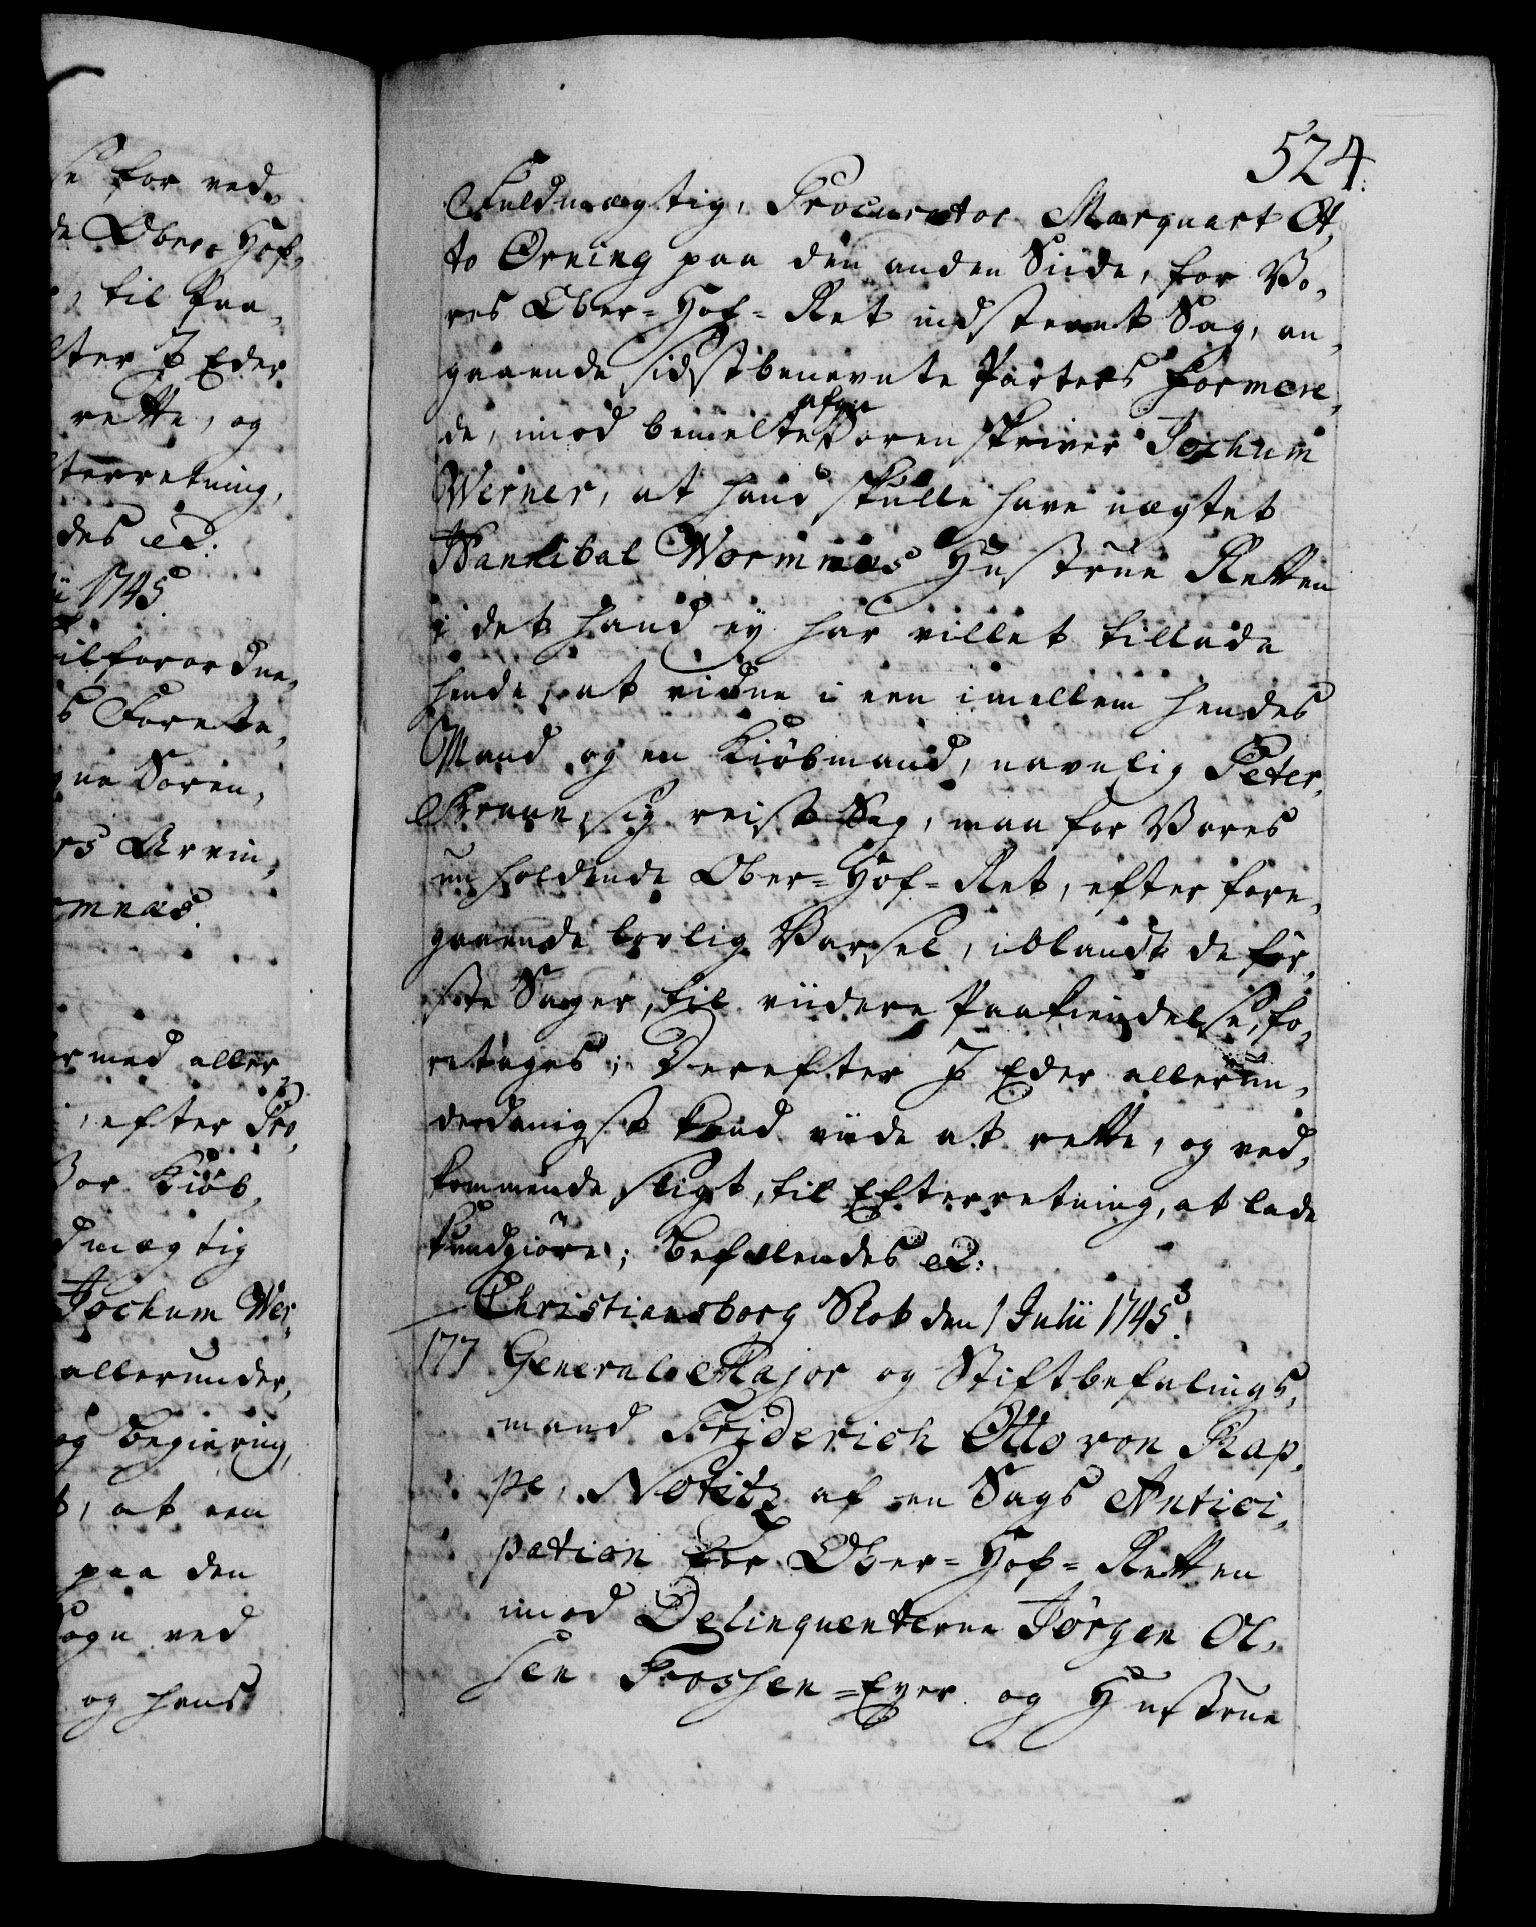 se for ved
de Ober-Hof,
, til Paa,
lter I Eder
rette, og
terretning,
des etc:
ii 1745.
ilforordne,
s Forete,
gne Soren,
rs Arvin,
mnæs.
rmed aller,
, efter Pro,
Vor Kiöb,
dmægtig
Jochum Wer,
allerunder,
og Begiering,
, at een
paa den
Sogn ved
og hans
524.
Fuldmægtig, Procurator Marquart Ot,
to Örning paa den anden Siide, for Vo,
res Ober-Hof-Ret indstevnt Sag, an,
gaaende sidstbenevnte Parters Formeene,
de, imod bemelte afgn. Sorenskriver Jochum
Werner, at hand skulle have nægtet
Hannibal Wormnæs Hustrue Retten
i det hand ey har villet tillade
hende, at vidne i een imellem hendes
Mand og en Kiöbmand, navnlig Peter
Krane, sig reist Sag, maa for Vores
nu holdende Ober-Hof-Ret, efter fore,
gaaende lovlig Varsel, iblandt de för,
ste Sager, til viidere Paakiendelse, fo,
retages; Derefter I Eder allerun,
derdanigst kand viide at rette, og ved,
kommende sligt, til Efterretning, at lade
kundgiöre; Befalendes etc:
Christiansborg Slot den 1 Julii 1745.
177 General-Major og Stiftbefalings,
mand Friderich Otto von Rap,
pe, Notitz af en Sags Antici,
pation for Ober-Hof-Retten
imod Delinquenterne Jörgen Ol,
sen Frossen-Eyer og Hustrue